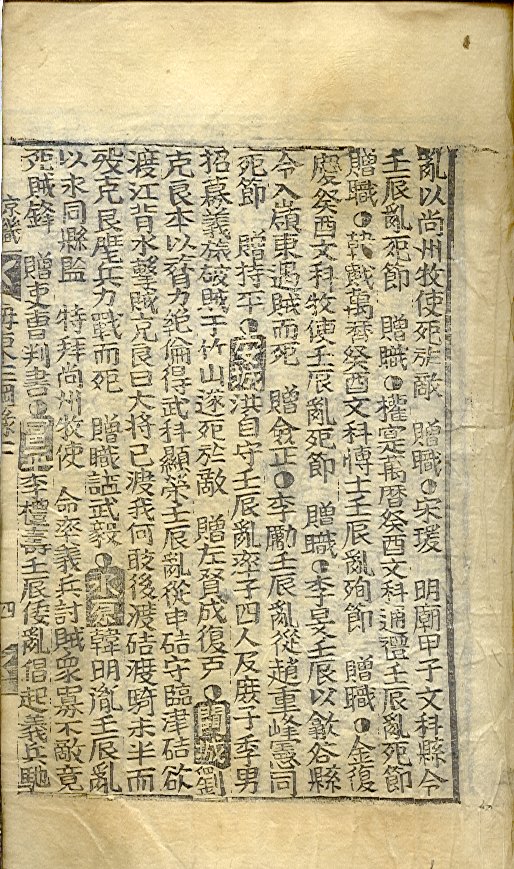 亂以尚州牧使死於敵 贈職●宋瑗 明廟甲子文科縣令
壬辰亂死節 贈職●權寔萬曆癸酉文科通禮壬辰亂死節
贈職●韓戩萬曆癸酉文科博士壬辰亂殉節 贈職●金復
慶癸酉文科牧使壬辰亂死節 贈職●李宴壬辰以歙谷縣
令入嶺東遇賊而死 贈僉正●李勵壬辰亂從趙重峰憲同
死節 贈持平●安城洪自守壬辰亂率子四人及庶子季男
招募義旅破賊于竹山逐死於敵 贈左贊成復戶●開城劉
克良本以膂力絶倫得武科顯榮壬辰亂從申硈守臨津硈欲
渡江背水擊賊克良曰大將已渡我何敢後渡硈渡時未半而
歿克良壓兵力戰而死 贈職諡武毅●水原韓明胤壬辰亂
以永同縣監 特拜尚州牧使 命率義兵討賊衆寡不敵竟
死賊鋒 贈吏曹判書● 李禮壽壬辰倭亂倡起義兵馳
京畿 四